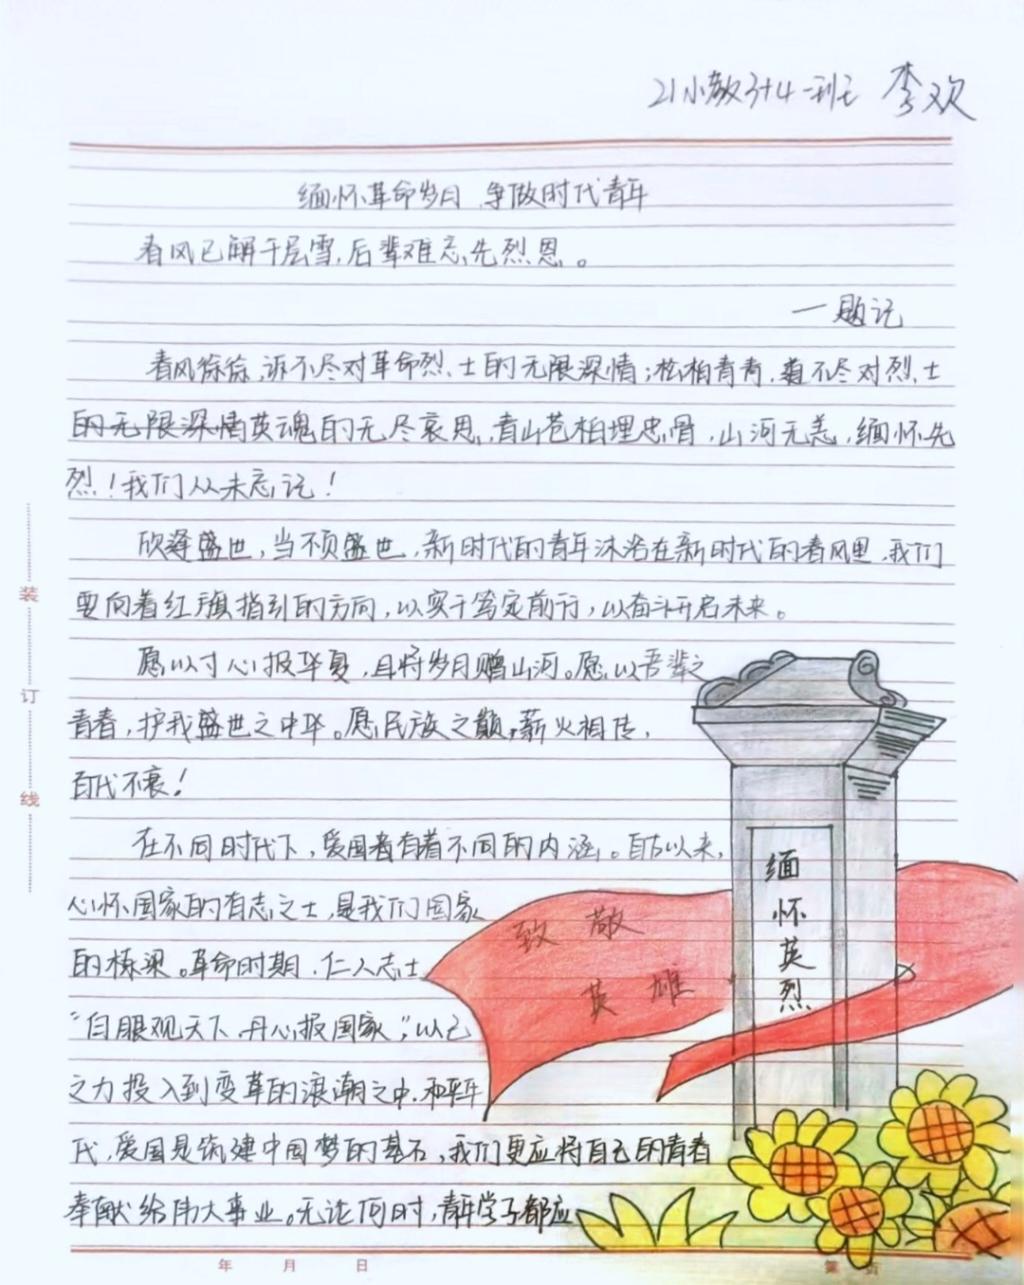 21小教3+4一班 李欢
缅怀革命岁月、争做时代青年
春风已解千层雪，后辈难忘先烈恩。
一题记
春风徐徐，诉不尽对革命烈士的无限深情；松柏青青，着不尽对烈士
的无限深情英魂的无尽哀思，青山苍柏埋忠骨，山河无恙，缅怀先
烈！我们从未忘记！
欣逢盛世，当不负盛世，新时代的青年沐浴在新时代的春风里，我们
要向着红旗指引的方向，以实干笃定前行，以奋斗开启未来。
愿以寸心报华夏，且将岁月赠山河。愿以吾辈之
青春，护我盛世之中华。愿民族之巅，薪火相传，
百代不衰！
在不同时代下，爱国者有着不同的内涵。自古以来，
心怀国家的有志之士，是我们国家
的栋梁。革命时期，仁人志士
“白眼观天下，丹心报国家”，以己
之力投入到变革的浪潮之中，和平年
代，爱国是筑建中国梦的基石，我们更应将自己的青春
奉献给伟大事业。无论何时，青年学子都应
致敬
英雄
缅怀英烈
装
订
线
年 月 日
第 页